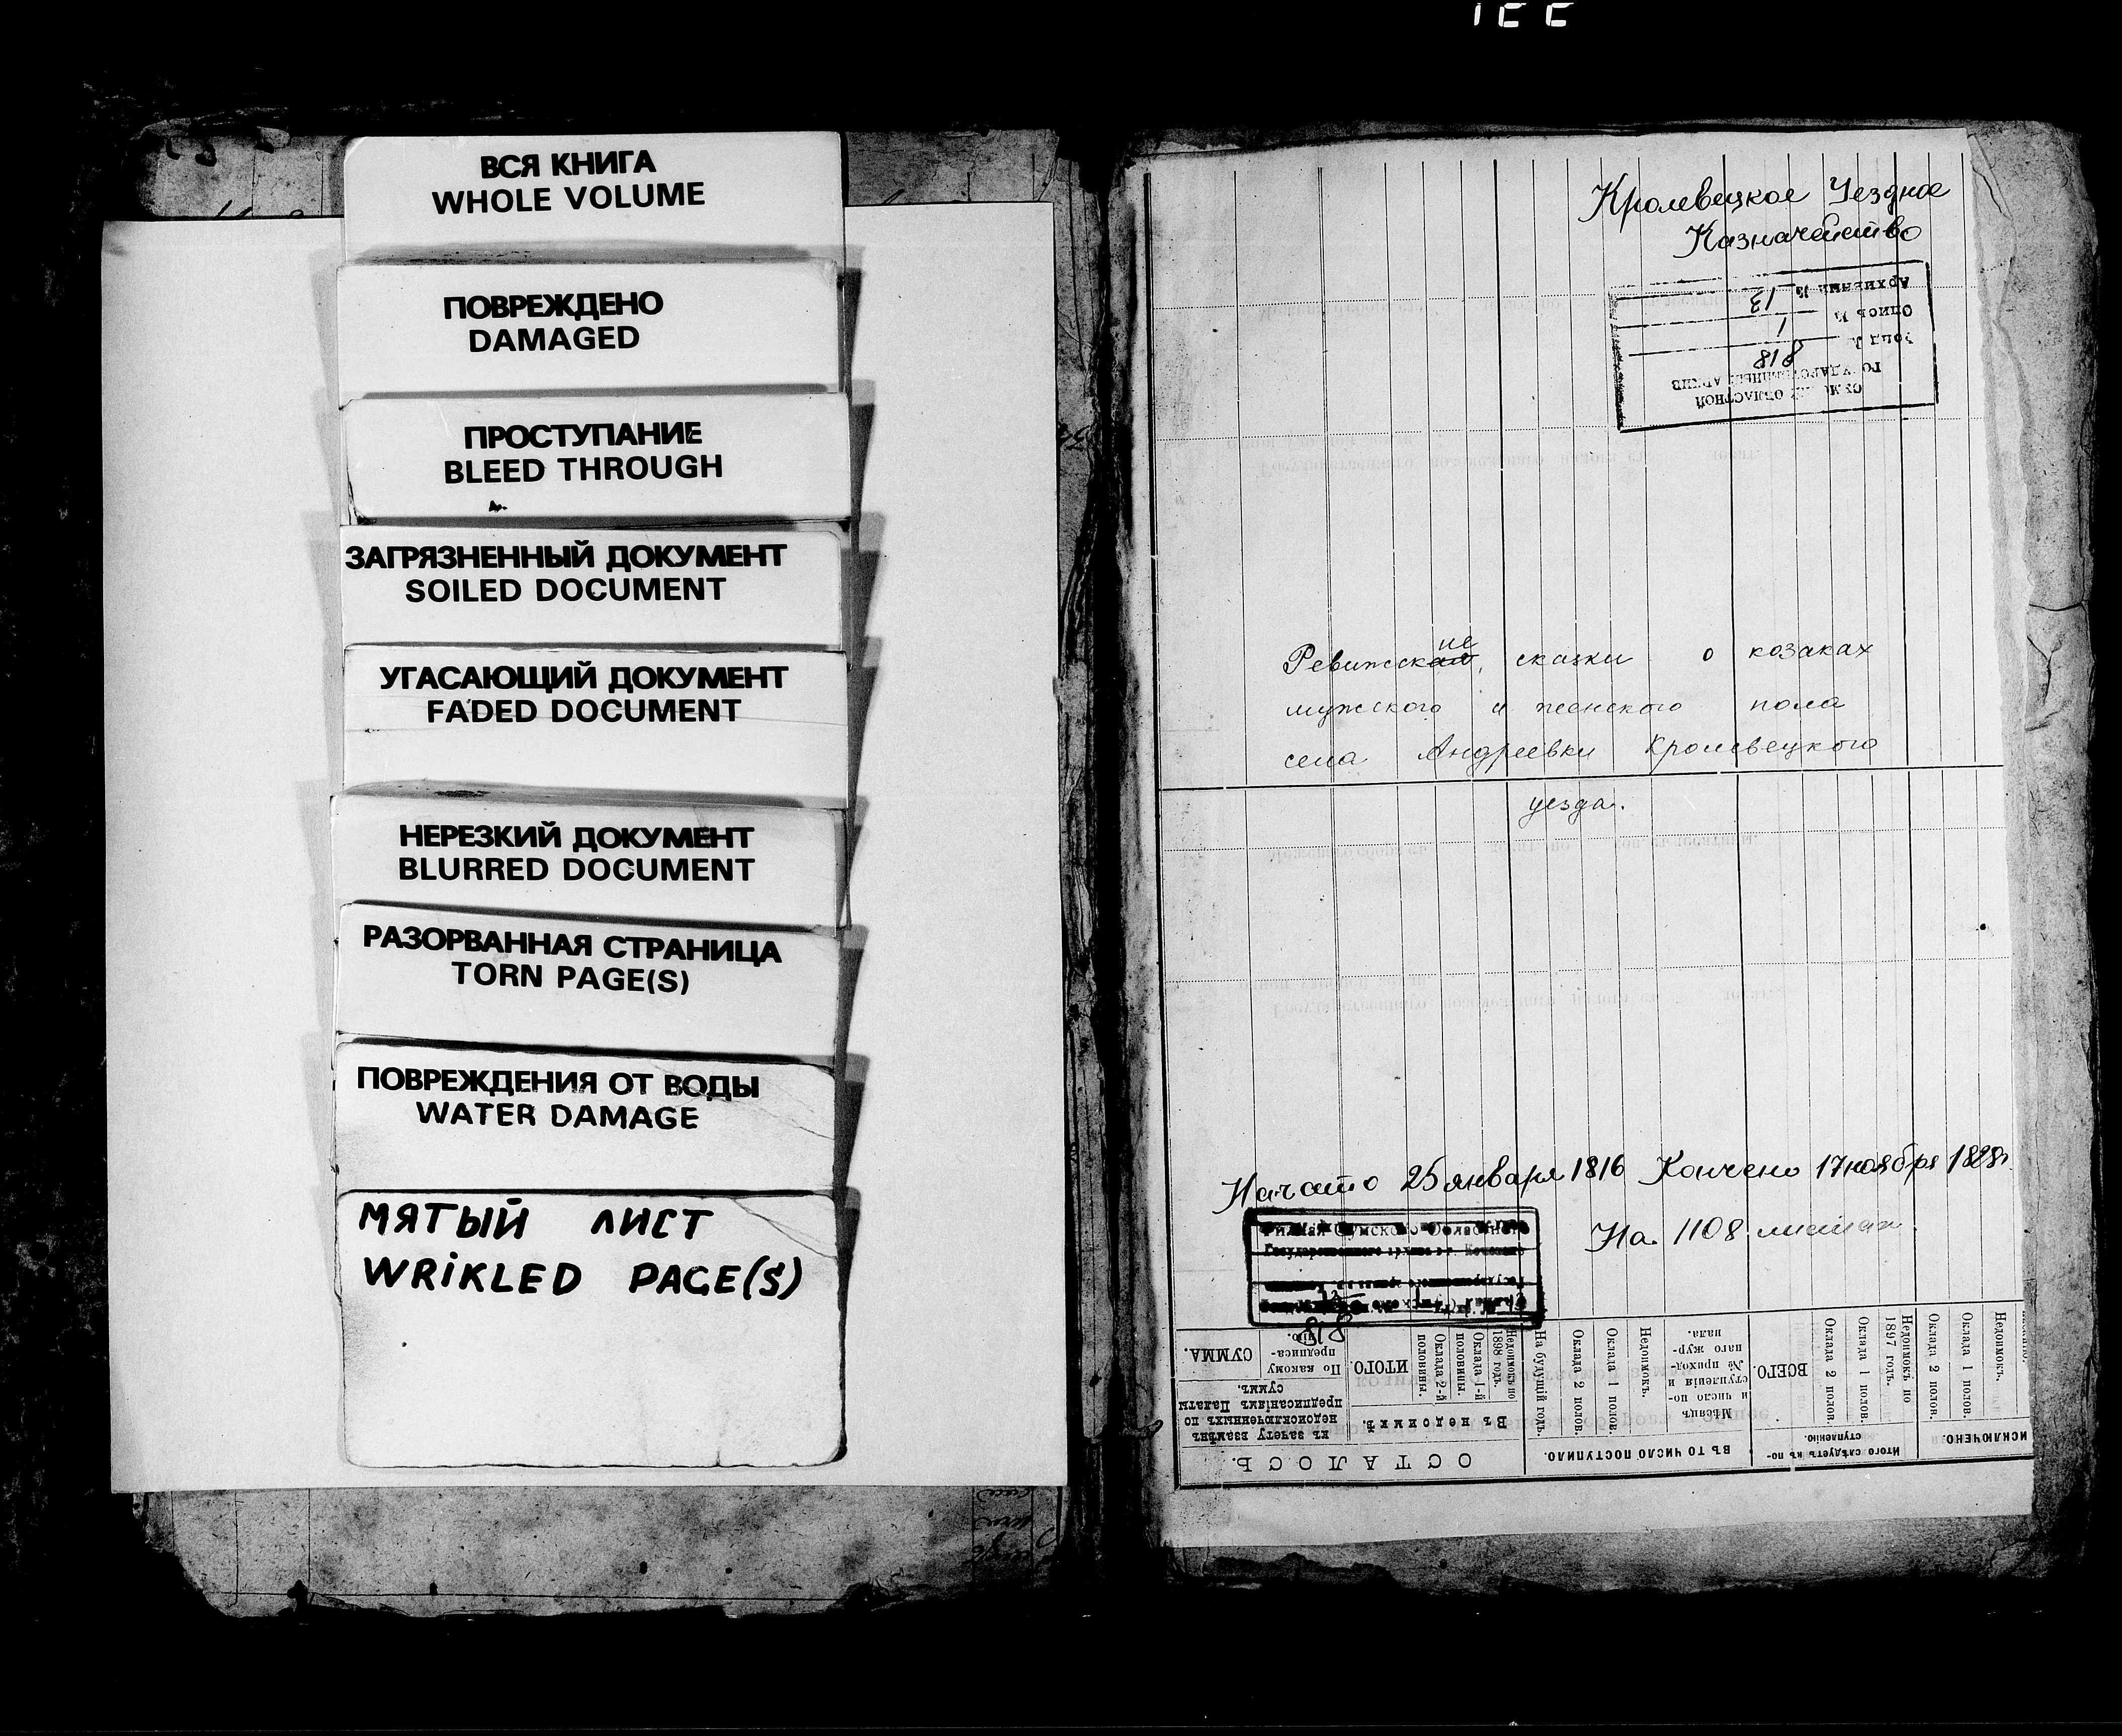 ВСЯ КНИГА
WHOLE VOLUME
ПОВРЕЖДЕНО
DAMAGED
ПРОСТУПАНИЕ
BLEED THROUGH
ЗАГРЯЗНЕННЫЙ ДОКУМЕНТ
SOILED DOCUMENT
УГАСАЮЩИЙ ДОКУМЕНТ
FADED DOCUMENT
НЕРЕЗКИЙ ДОКУМЕНТ
BLURRED DOCUMENT
РАЗОРВАННАЯ СТРАНИЦА
TORN PAGE(S)
ПОВРЕЖДЕНИЯ ОТ ВОДЫ
WATER DAMAGE
МЯТЫЙ ЛИСТ
WRiKLED PAGE(S)
Кролевецкое Уездное
Казначейство
Архивный № 13
Опись № 1
818
ГОСУДАРСТВЕННЫЙ АРХИВ
ОБЛАСТНОЙ
Ревижские сказки о козаках
мужского и женского пола
села Андреевки Кролевецкого
уезда.
Начато 25 января 1816 Кончено 17 ноября
На 1108 листах
Филиал Сумского Областного
818
СУММА.
По какому
предписа-
нію.
ИТОГО.
Оклада 2-й
половины.
Оклада 1-й
половины.
Недоимокъ по
1898 годъ.
На будущій годъ.
Оклада 2 полов.
Оклада 1 полов.
Недоимокъ.
Мѣсяцъ
и число по-
ступленія и
№ приход-
наго жур-
нала.
ВСЕГО.
Оклада 2 полов.
Оклада 1 полов.
Недоимокъ по
1897 годъ.
Оклада 2 полов.
Оклада 1 полов.
Недоимокъ.
къ зачету взамѣнъ
недоисключенныхъ по
предписаніямъ Палаты
суммъ.
Въ недоимкѣ.
ОСТАЛОСЬ.
ВЪ ТО ЧИСЛО ПОСТУПИЛО.
Итого слѣдуетъ къ по-
ступленію.
ИСКЛЮЧЕНО.